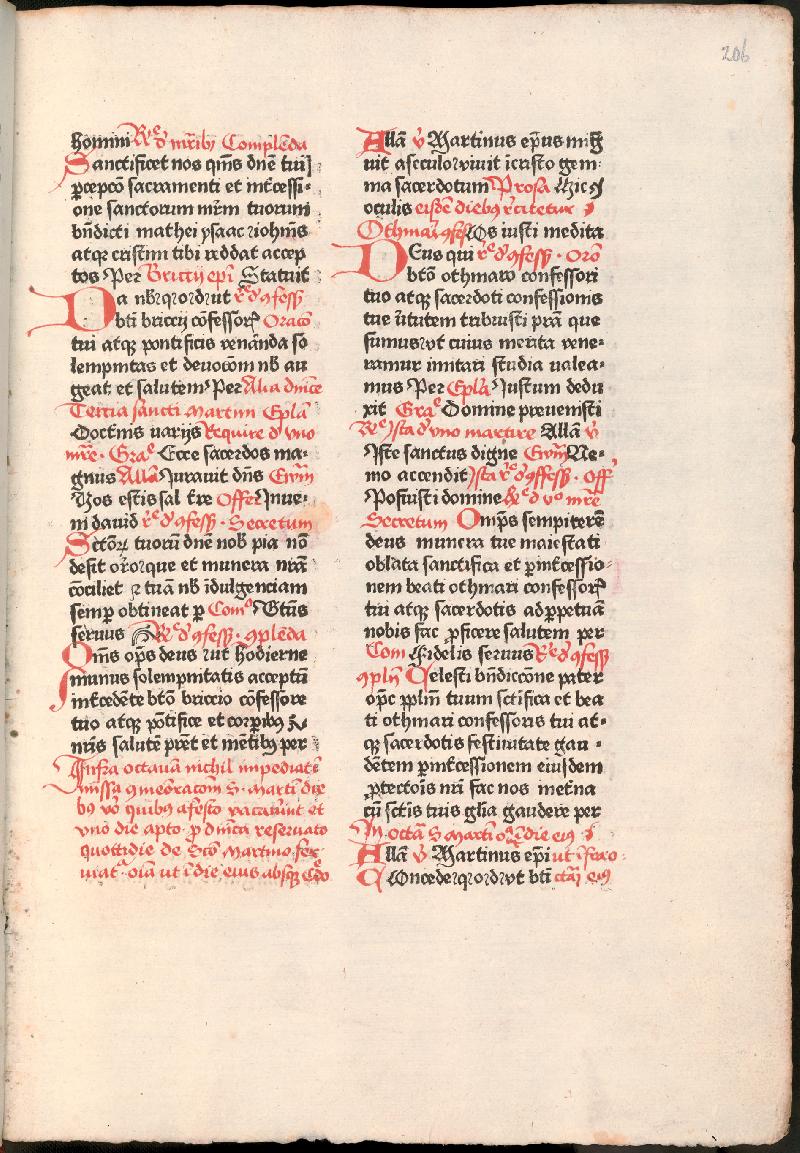 206
homini Re^e d' mr̄ibꝫ Complēda
Sanctificet nos qm̄s dn̄e tui
ꝑcepcō sacramenti et int̄cessi-
one sanctorum mr̄m tuorum
bn̄dicti mathei ysaac iohīs
atqꝫ cristini tibi reddat accep
tos Per Brictij ep̄i Statuit
Da nb̄ q̄ o d ut r^e d' ꝯfess
bt̄i briccij cōfessorꝭ Oracō
tui atqꝫ pontificis venānda so
lempnitas et deuocōm nb̄ au
geat et salutem Per Alia dnīce
Tercia sancti Martini Epl̄a
Doctīs varijs Require d' vno
mr̄e · Gra^e Ecce sacerdos ma-
gnus All̄a Jurauit dn̄s Ewm̄
Vos estis sal t̄re Offer Inue-
ni dauid r^e d' ꝯfess · Secretum
Sctōꝝ tuorū dn̄e nob̄ pia nō
desit or̄o que et munera nr̄a
cōciliet ⁊ tuā nb̄ īdulgenciam
semꝑ obtineat ꝑ Com^o Btūs
seruus Re^e d' ꝯfess · ꝯplēda
Om̄s op̄s deus ut hodierne
munus solempnitatis acceptū
int̄cedēte bt̄o briccio cōfessore
tuo atqꝫ pōtifice et corꝑibꝫ
nr̄is salutē pret et mētibꝫ per
Infra octauā nichil impediatē
missā ꝯmēoracōm S · Marti die
bꝫ vō quibꝫ a festo vacauīt et
vno die apto ꝓ dnīca reseruato
quottidie de Scō Martino ser
uat^r oīa ut ī die eius absqꝫ Cdo
All̄a v̄ Martinus ep̄us migͣ
uit a seculo viuit ī cristo gem-
ma sacerdotum Prosa
oculis eisdē diebꝫ r̄citetur
Othmar ꝯfess Os iusti medita
Deus qui r^e d' ꝯfess · Orō
bt̄o othmaro confessori
tuo atqꝫ sacerdoti confessionis
tue ūtutem tribuisti pr̄a que
sumus ut cuius merita vene-
ramur imitari studia valea-
mus Per Epl̄a Justum dedu
xit Gra^e Domine preuenisti
Re^e ista d' vno martire All̄a v̄
Iste sanctus digne Ewm̄ Ne-
mo accendit ista r^e d' ꝯfess · Off
Posuisti domine Re^e d' vo mr̄e
Secretum Omp̄s sempiterē
deus munera tue maiestati
oblata sanctifica et ꝑ int̄cessio-
nem beati othmari confessorꝭ
tui atqꝫ sacerdotis ad ꝑpetuā
nobis fac ꝓficere salutem per
Com Fidelis seruus Re^e d' ꝯfess
ꝯplm̄ Celesti bn̄diccōne pater
op̄c pplm̄ tuum sctifica et bea
ti othmari confessoris tui at-
qꝫ sacerdotis festiuitate gau-
dētem ꝑ int̄cessionem eiusdem
ꝓtectoīs nr̄i fac nos int̄na
cū sctīs tuis glīa gaudere per
In octā S Marti oīa ī die eiꝯ
All̄a v̄ Martinus ep̄i ut ī ferro
Concede q̄ o d ut bt̄i ctāj eiꝯ